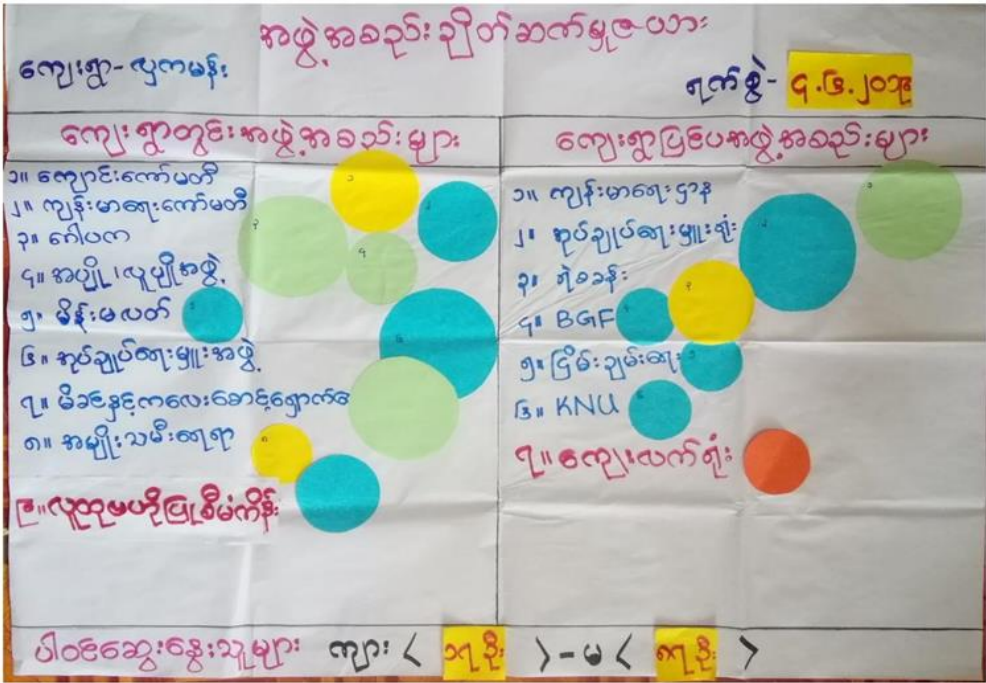 အဖွဲ့အစည်းချိတ်ဆက်မှုဇယား
ကျေးရွာ-လှကမန်း
ရက်စွဲ- ၄.၆.၂၀၁၉
ကျေးရွာတွင်းအဖွဲ့အစည်းများ
၁။ ကျောင်းကော်မတီ
၂။ ကျန်းမာရေးကော်မတီ
၃။ ဂေါပက
၄။ အပျို၊လူပျိုအဖွဲ့
၅။ မိန်းမလတ်
၆။ အုပ်ချုပ်ရေးမှူးအဖွဲ့
၇။ မိခင်နှင့်ကလေးစောင့်ရှောက်ရေး
၈။ အမျိုးသမီးရေးရာ
၉။ လူထုဗဟိုပြုစီမံကိန်း
ကျေးရွာပြင်ပအဖွဲ့အစည်းများ
၁။ ကျန်းမာရေးဌာန
၂။ အုပ်ချုပ်ရေးမှူးရုံး
၃။ ရဲစခန်း
၄။ BGF
၅။ ငြိမ်းချမ်းရေး
၆။ KNU
၇။ ကျေးလက်ရုံး
ပါဝင်ဆွေးနွေးသူများ ကျား < ၁၇ ဦး > - မ < ၈၇ ဦး >